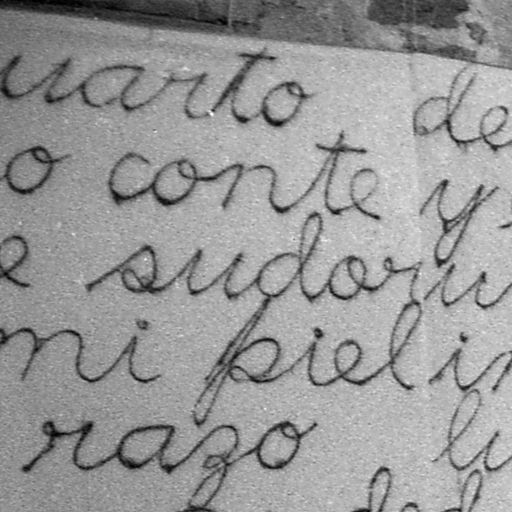 uarto de
o conte y
e sudor u
mi piel in
razo li